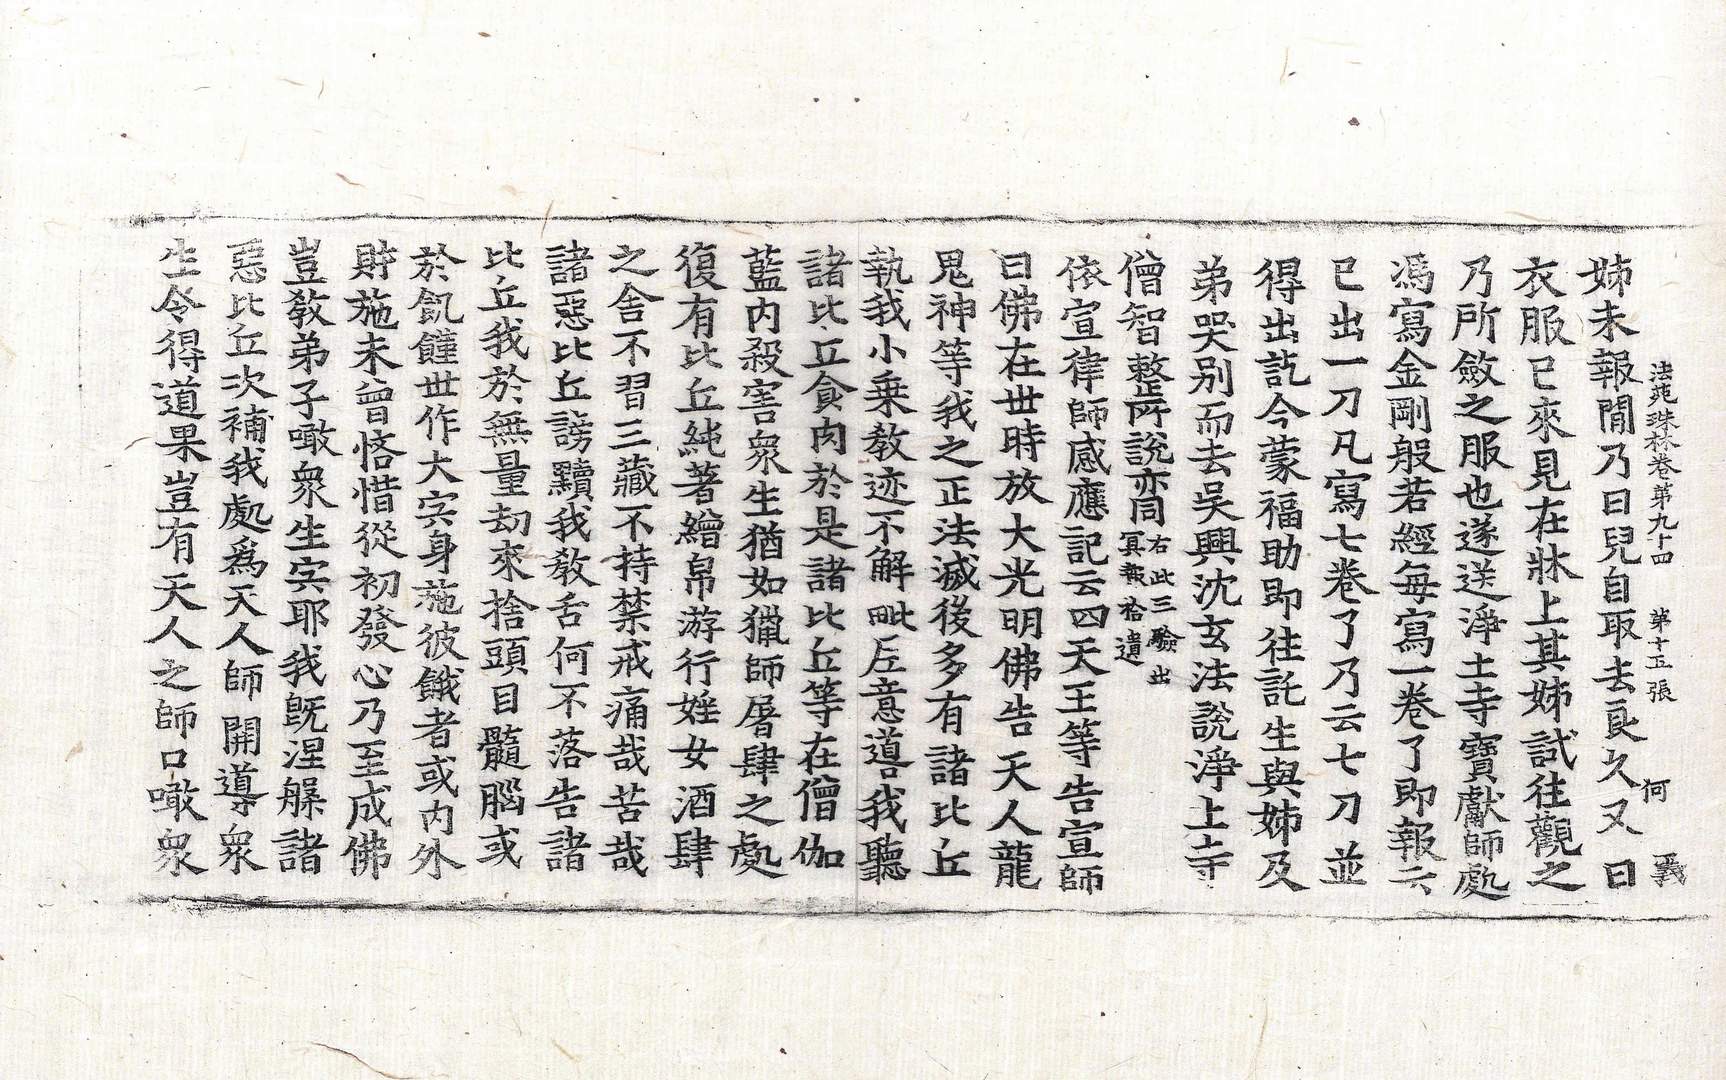 法苑珠林卷第九十四 第十五張 何 義
姊未報間乃曰兒自取去良久又曰
衣服已來見在牀上其姊試往觀之
乃所斂之服也遂送淨土寺寶獻師處
馮寫金剛般若經每寫一卷了即報云
已出一刀凡寫七卷了乃云七刀並
得出訖今蒙福助即往託生與姊及
弟哭别而去吳興沈玄法說淨土寺
僧智整所說亦同右此三驗出冥報拾遺
依宣律師感應記云四天王等告宣師
曰佛在世時放大光明佛告天人龍
鬼神等我之正法滅後多有諸比丘
執我小乗教迹不解毗尼意噵我聽
諸比丘食肉於是諸比丘等在僧伽
藍内殺害衆生猶如獵師屠肆之處
復有比丘純著繒帛游行婬女酒肆
之舍不習三藏不持禁戒痛哉苦哉
諸惡比丘謗黷我教舌何不落告諸
比丘我於無量劫來捨頭目髓腦或
於飢饉世作大宍身施彼餓者或内外
財施未曾悋惜從初發心乃至成佛
豈教弟子噉衆生宍耶我旣涅槃諸
惡比丘次補我處爲天人師開導衆
生令得道果豈有天人之師口噉衆